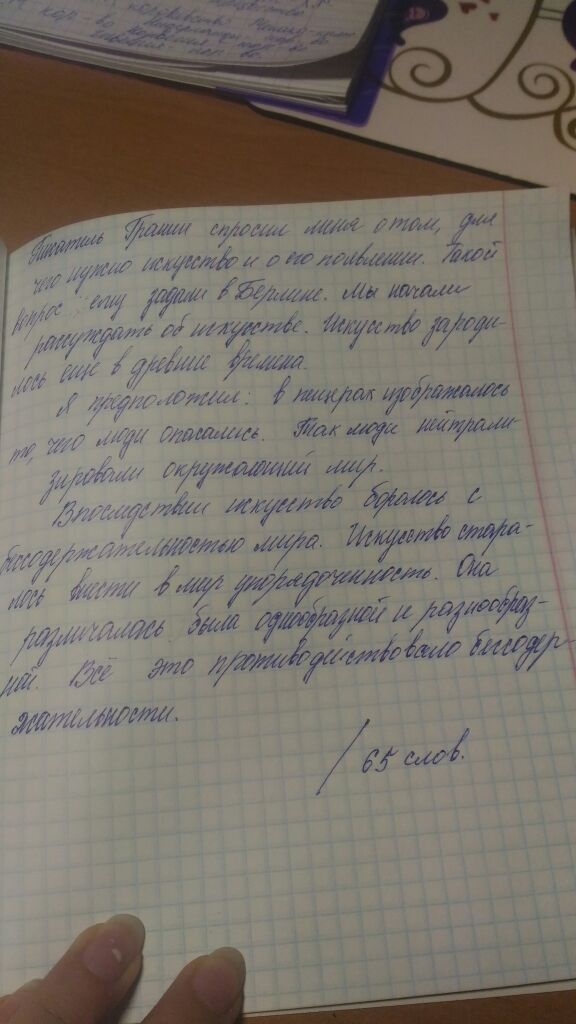 во
Писатель Гранин спросил меня о том, для
чего нужно искусство и о его появлении. Такой
вопрос ему задали в Берлине. Мы начали
рассуждать об искусстве. Искусство зароди-
лось еще в древние времена.
Я предположил: в пещерах изображалось
то, чего люди опасались. Так люди нейтрали-
зировали окружающий мир.
Впоследствии искусство боролось с
бессодержательностью мира. Искусство стара-
лось внести в мир упорядоченность. Она
различалась: была однообразной и разнообраз-
ной. Всё это противодействовало бессодер-
жательности.
/ 65 слов.